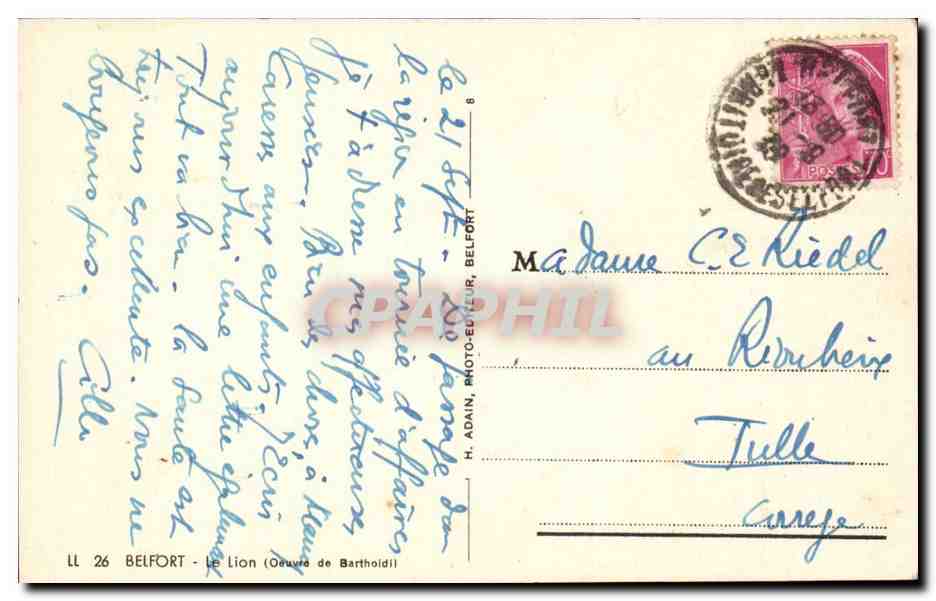 le 21 Sept - De passage dans
la région en tournée d'affaires
je t'adresse mes affectueuses
pensées. Bien des choses à
Caresses aux enfants. J'écris
aujourd'hui une lettre également
Tout va bien. la santé est
toujours excellente. Nous ne
bougeons pas.
Madame C. E Riedel
au
Tulle
Corrèze
H. ADAIN, PHOTO-EDITEUR, BELFORT 8
LL 26 BELFORT - Le Lion (Oeuvre de Bartholdi)
BELFORT
POSTES
CPAPHIL